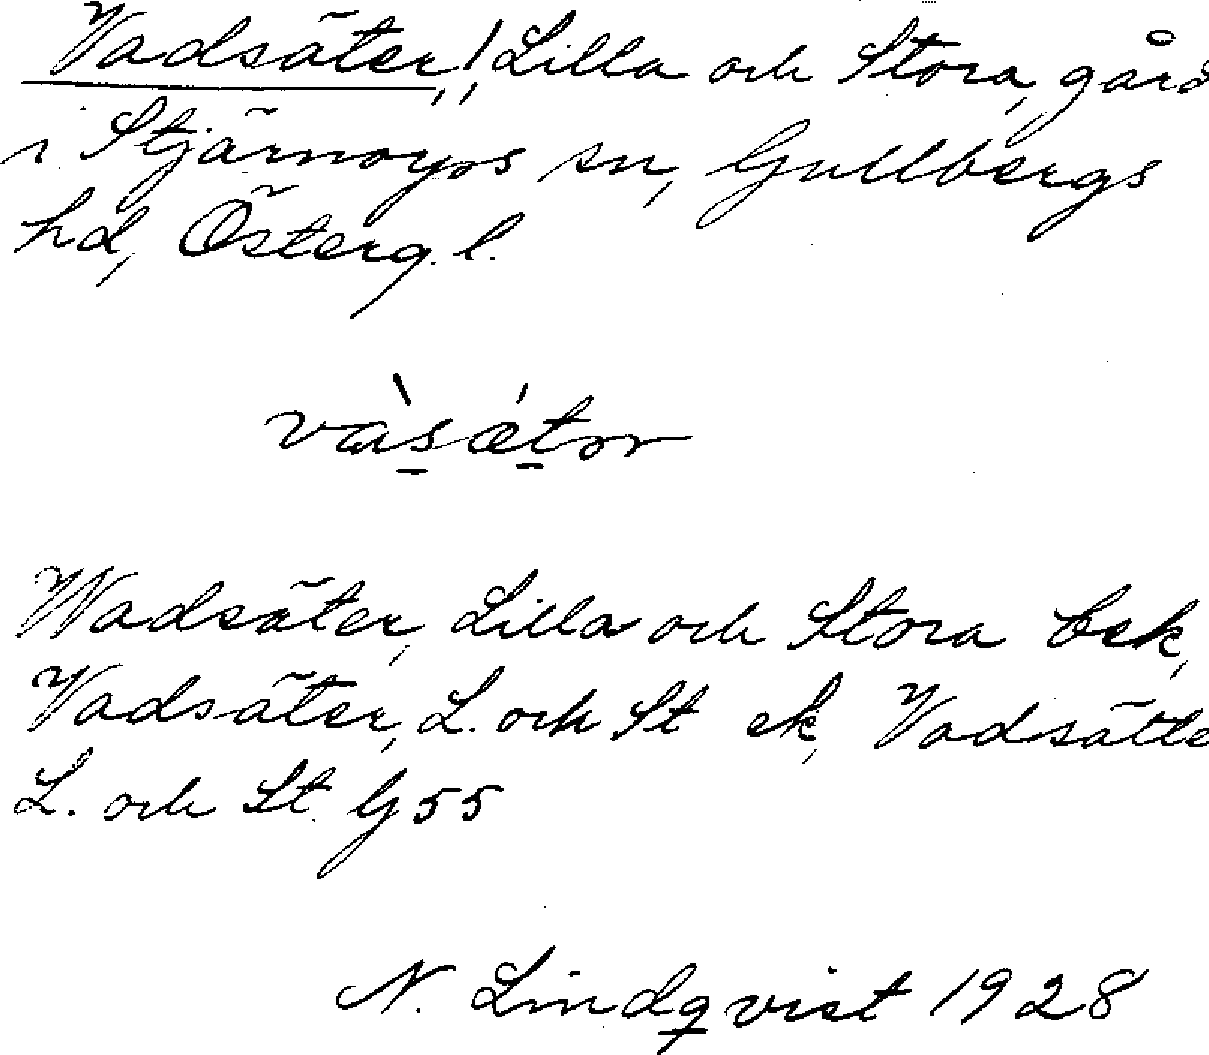 Vadsäter,! Lilla och Stora, gård
i Stjärnorps sn, Gullbergs
hd, Österg. l.
vàsǽtər
Wadsäter, Lilla och Stora bsk,
Vadsäter, L. och St ek, Vadsätte
L. och St. G55
N. Lindqvist 1928